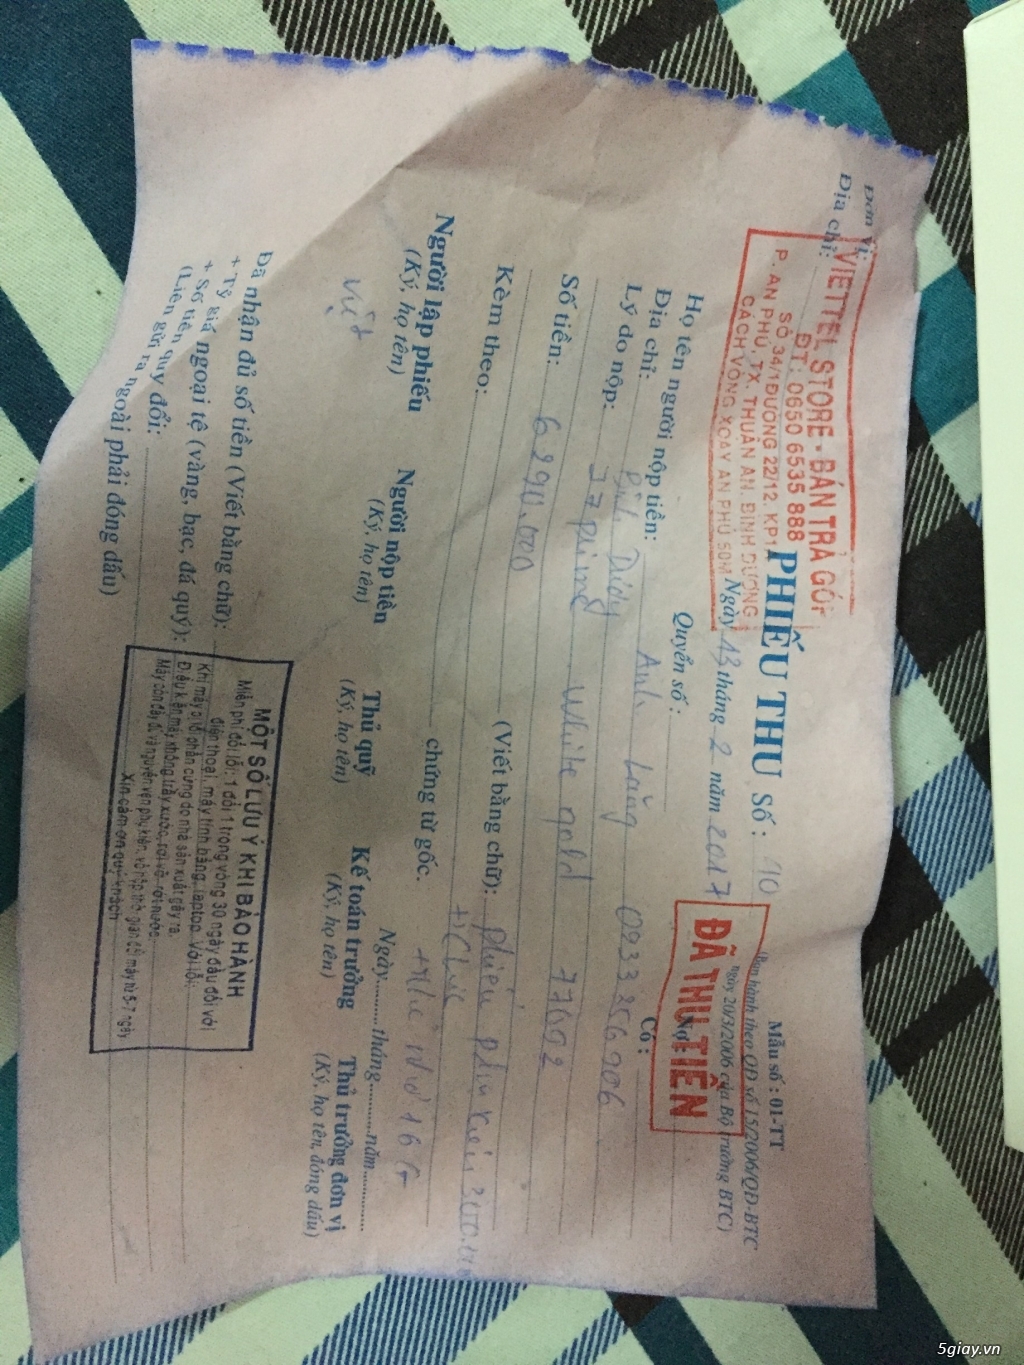 Đơn vị:
Địa chỉ:
VIETTEL STORE - BÁN TRẢ GÓP
ĐT: 0650 6535 888
SỐ 34/1 ĐƯỜNG 22/12. KP1A
P. AN PHÚ, TX. THUẬN AN. BÌNH DƯƠNG
CÁCH VÒNG XOAY AN PHÚ 50M
Mẫu số : 01-TT
(Ban hành theo QĐ số 15/2006/QĐ-BTC
ngày 20/3/2006 của Bộ trưởng BTC)
PHIẾU THU Số : 110
Ngày 13 tháng 2 năm 2017
ĐÃ THU TIỀN
Quyển số :
Nợ :
Có :
Họ tên người nộp tiền: Anh Lăng 0933 256 906
Địa chỉ: Bình Dương
Lý do nộp: J7 prime white gold 77092
Số tiền: 6290.000 (Viết bằng chữ): phiếu phụ kiện 300.000
Kèm theo: chứng từ gốc. + thẻ nhớ 16 G
Ngày tháng năm
Người lập phiếu
(Ký, họ tên)
Người nộp tiền
(Ký, họ tên)
Thủ quỹ
(Ký, họ tên)
Kế toán trưởng
(Ký, họ tên)
Thủ trưởng đơn vị
(Ký, họ tên, đóng dấu)
Việt
Đã nhận đủ số tiền (Viết bằng chữ):
+ Tỷ giá ngoại tệ (vàng, bạc, đá quý):
+ Số tiền quy đổi:
(Liên gửi ra ngoài phải đóng dấu)
MỘT SỐ LƯU Ý KHI BẢO HÀNH
Miễn phí đổi lỗi: 1 đổi 1 trong vòng 30 ngày đầu đối với
điện thoại, máy tính bảng, laptop. Với lỗi:
Khi máy bị lỗi phần cứng do nhà sản xuất gây ra.
Điều kiện máy không trầy xước, rơi vỡ, rớt nước
Máy còn đầy đủ và nguyên vẹn phụ kiện, vỏ hộp, thời gian đổi máy từ 5-7 ngày
Xin cảm ơn quý khách
5giay.vn